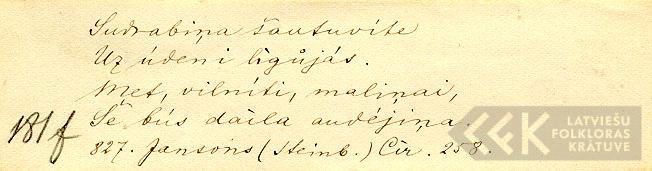 Sudrabiņa šautuvíte
Uz údeni lígůjás.
Met, vilníti, maliņai,
Šé bús daila audéjiņa.
181f
827. Jansons (Steinb.) Cír. 258.
LATVIEŠU
FOLKLORAS
KRĀTUVE